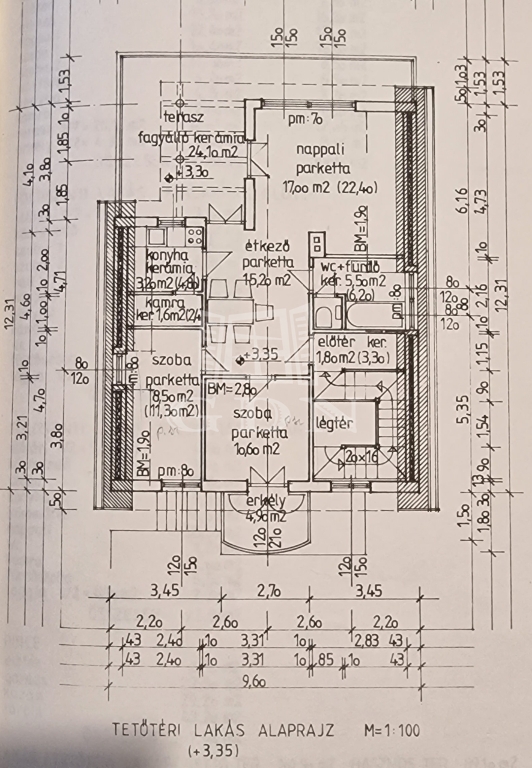 15o 15o
15o 15o
terasz
fagyálló kerámia
24,1o m2
+3,3o
pm:7o
nappali
parketta
17,oo m2 (22,4o)
BM=1.9o
konyha
kerámia
3,2o m2 (4,8o)
étkező
parketta
15,2o m2
wc+fürdő
ker. 5,5o m2
(6,2o)
pm:8o
kamra
ker 1,6 m2
+3,35
előtér ker.
1,8o m2 (3,3o)
szoba
parketta
8,5o m2
(11,3o m2)
BM=1.9o
pm:8o
BM=2,8o
szoba
parketta
1o,6o m2
légtér
2o×16
erkély
4,9o m2
12,31
4,1o
4,6o
3,21
3o
1,53
1o
1,85
1,85
3,8o
3o
2,oo
1,oo
4,71
4,7o
3,8o
5o
8o
12o
5o
1,o3
1,53
1,53
3o
6,16
4,73
1o
2,16
12,31
8o
12o
8o
12o
1,15
5,35
9o
1,54
1,5o
1,8o
3o
12o
15o
12o
21o
12o
15o
3,45 2,7o 3,45
2,2o 2,6o 2,6o 2,2o
43 2,4o 1o 3,31 1o 2,83 43
43 2,4o 1o 3,31 1o 85 1o 43
9,6o
TETŐTÉRI LAKÁS ALAPRAJZ M=1:100
(+3,35)